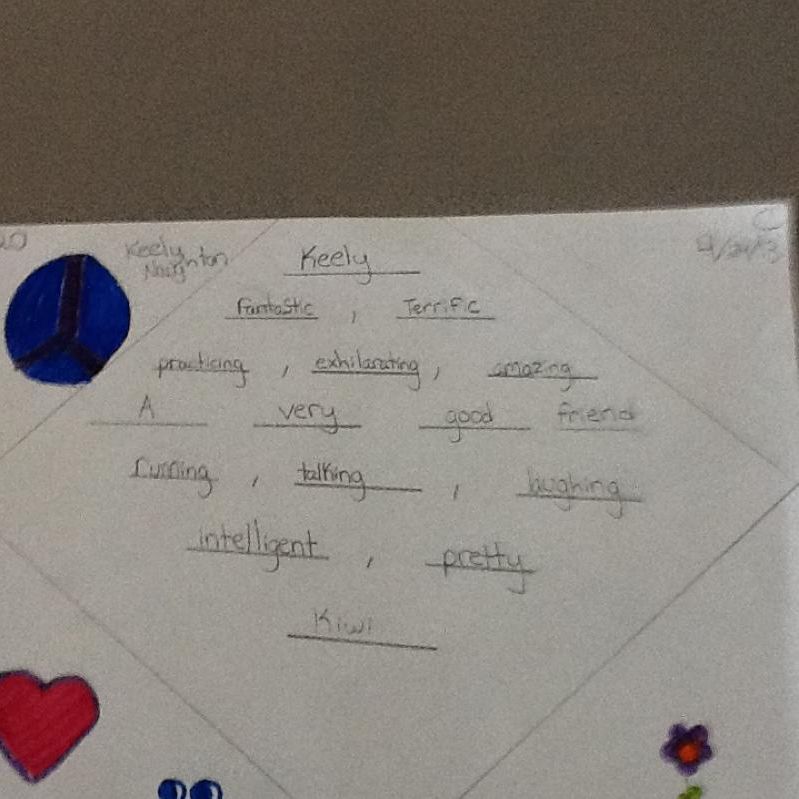 Keely
Naughton
Keely
Fantastic , Terrific
practicing , exhilarating , amazing
A very good friend
running , talking , laughing
intelligent , pretty
Kiwi